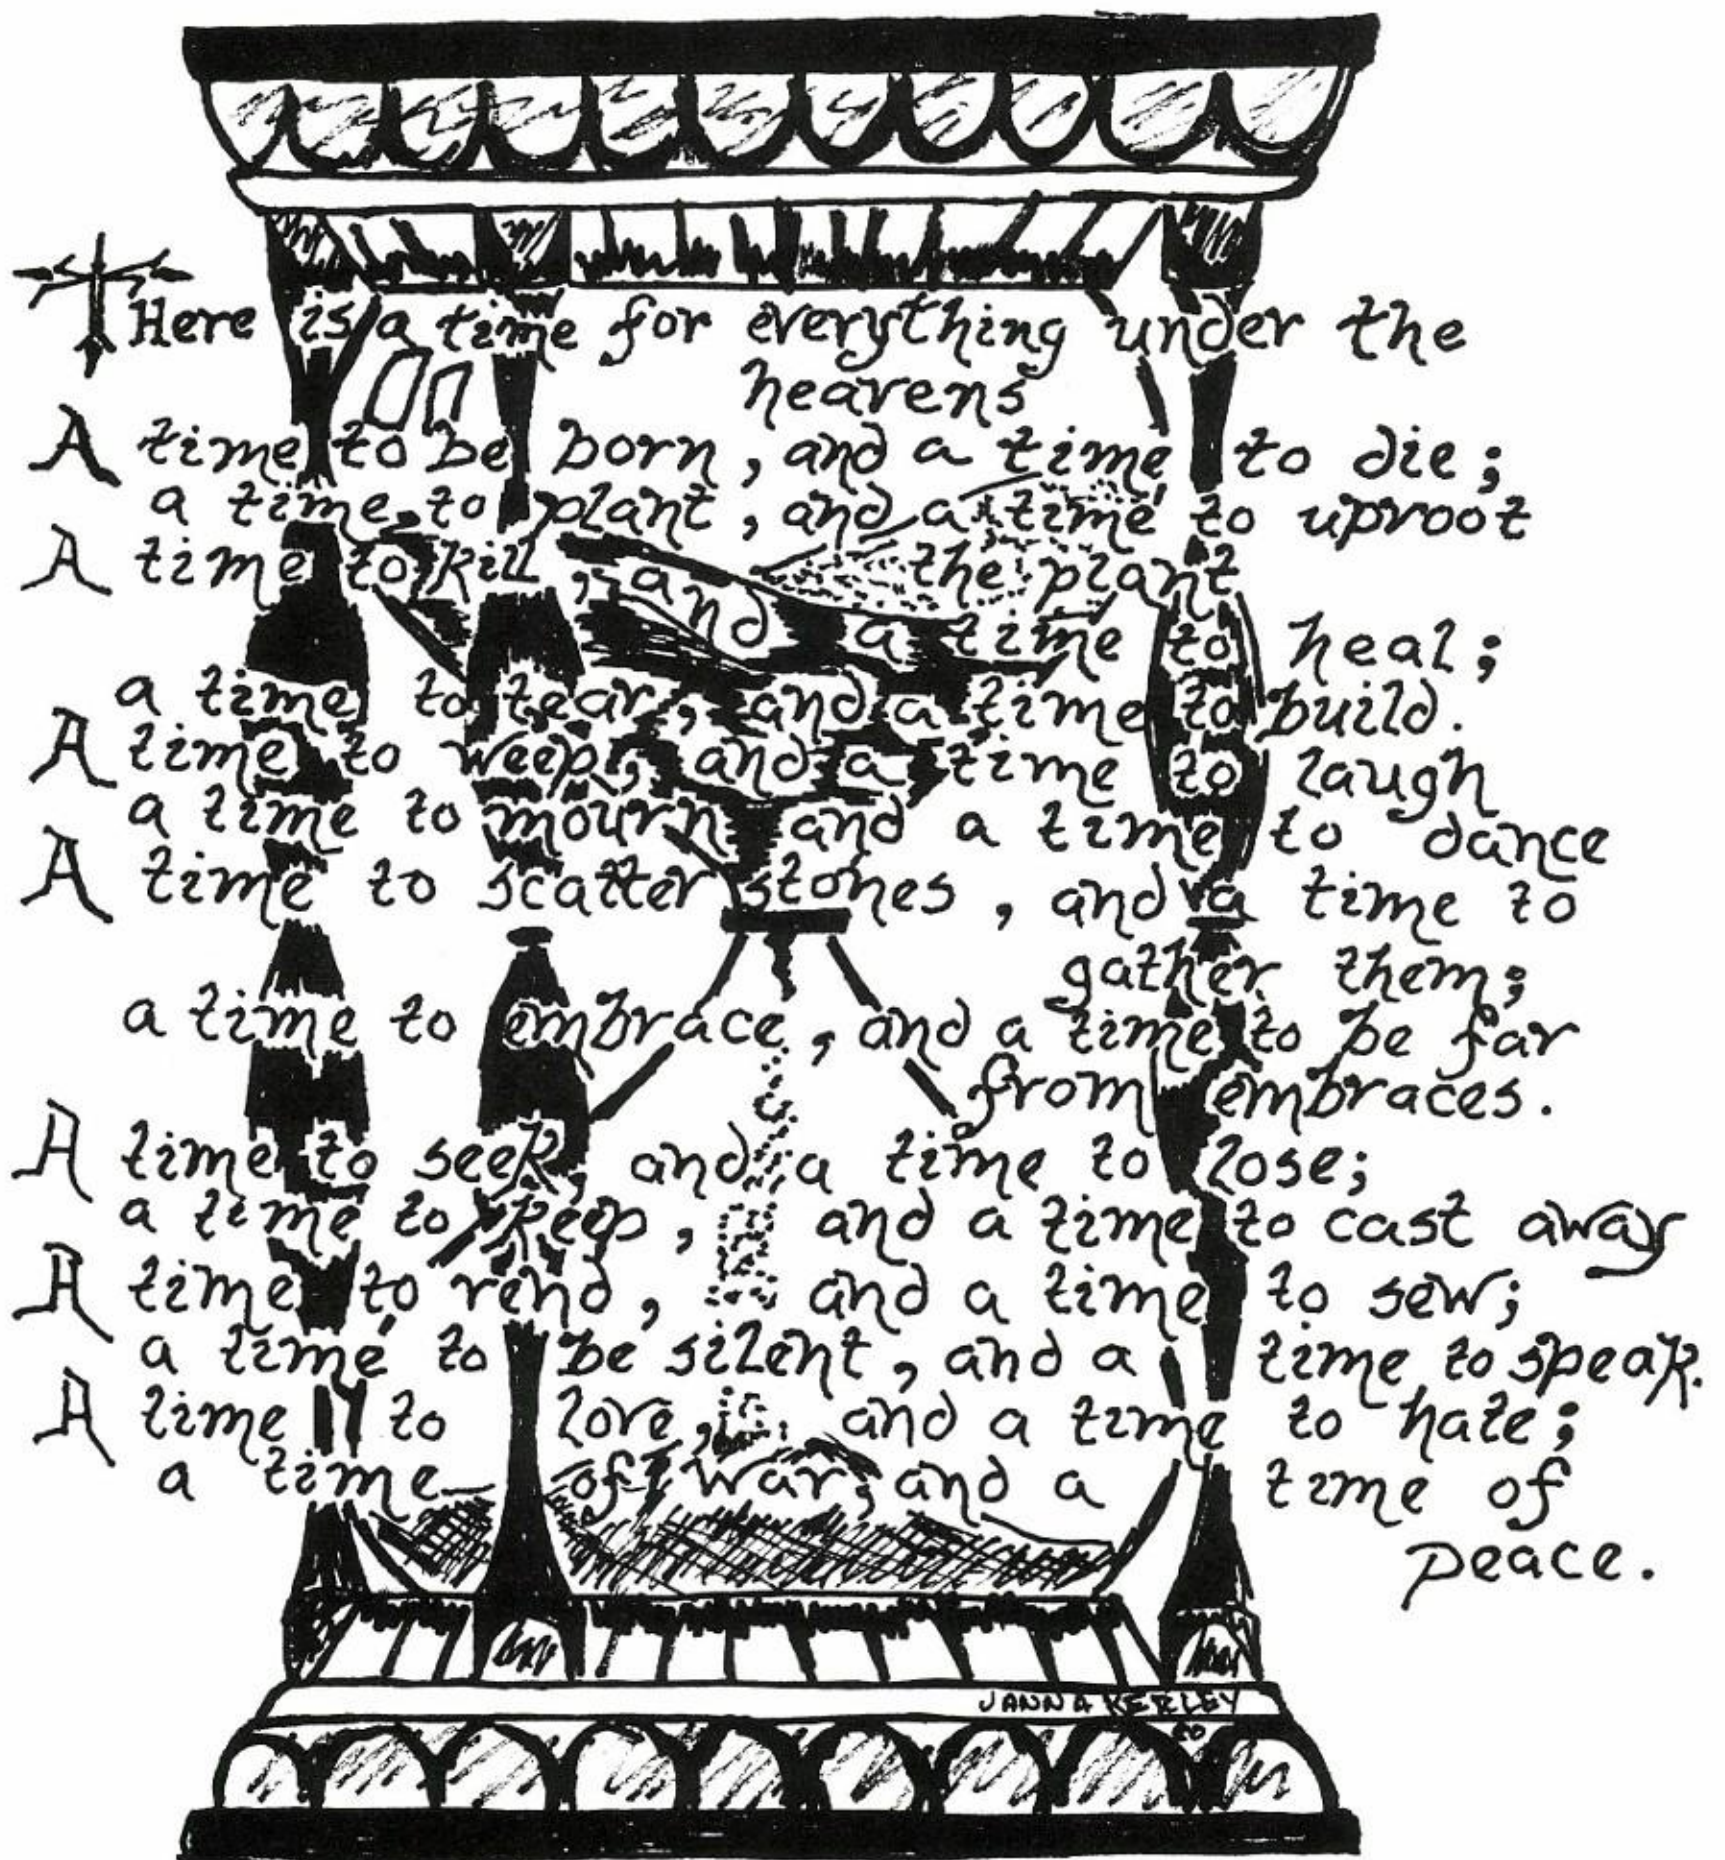 There is a time for everything under the
heavens
A time to be born, and a time to die;
a time to plant, and a time to uproot
the plant
A time to kill, and a time to heal;
a time to tear, and a time to build.
A time to weep, and a time to laugh
a time to mourn and a time to dance
A time to scatter stones, and a time to
gather them;
a time to embrace, and a time to be far
from embraces.
A time to seek, and a time to lose;
a time to keep, and a time to cast away
A time to rend, and a time to sew;
a time to be silent, and a time to speak.
A time to love, and a time to hate;
a time of war, and a time of
peace.
JANNA KERLEY
80